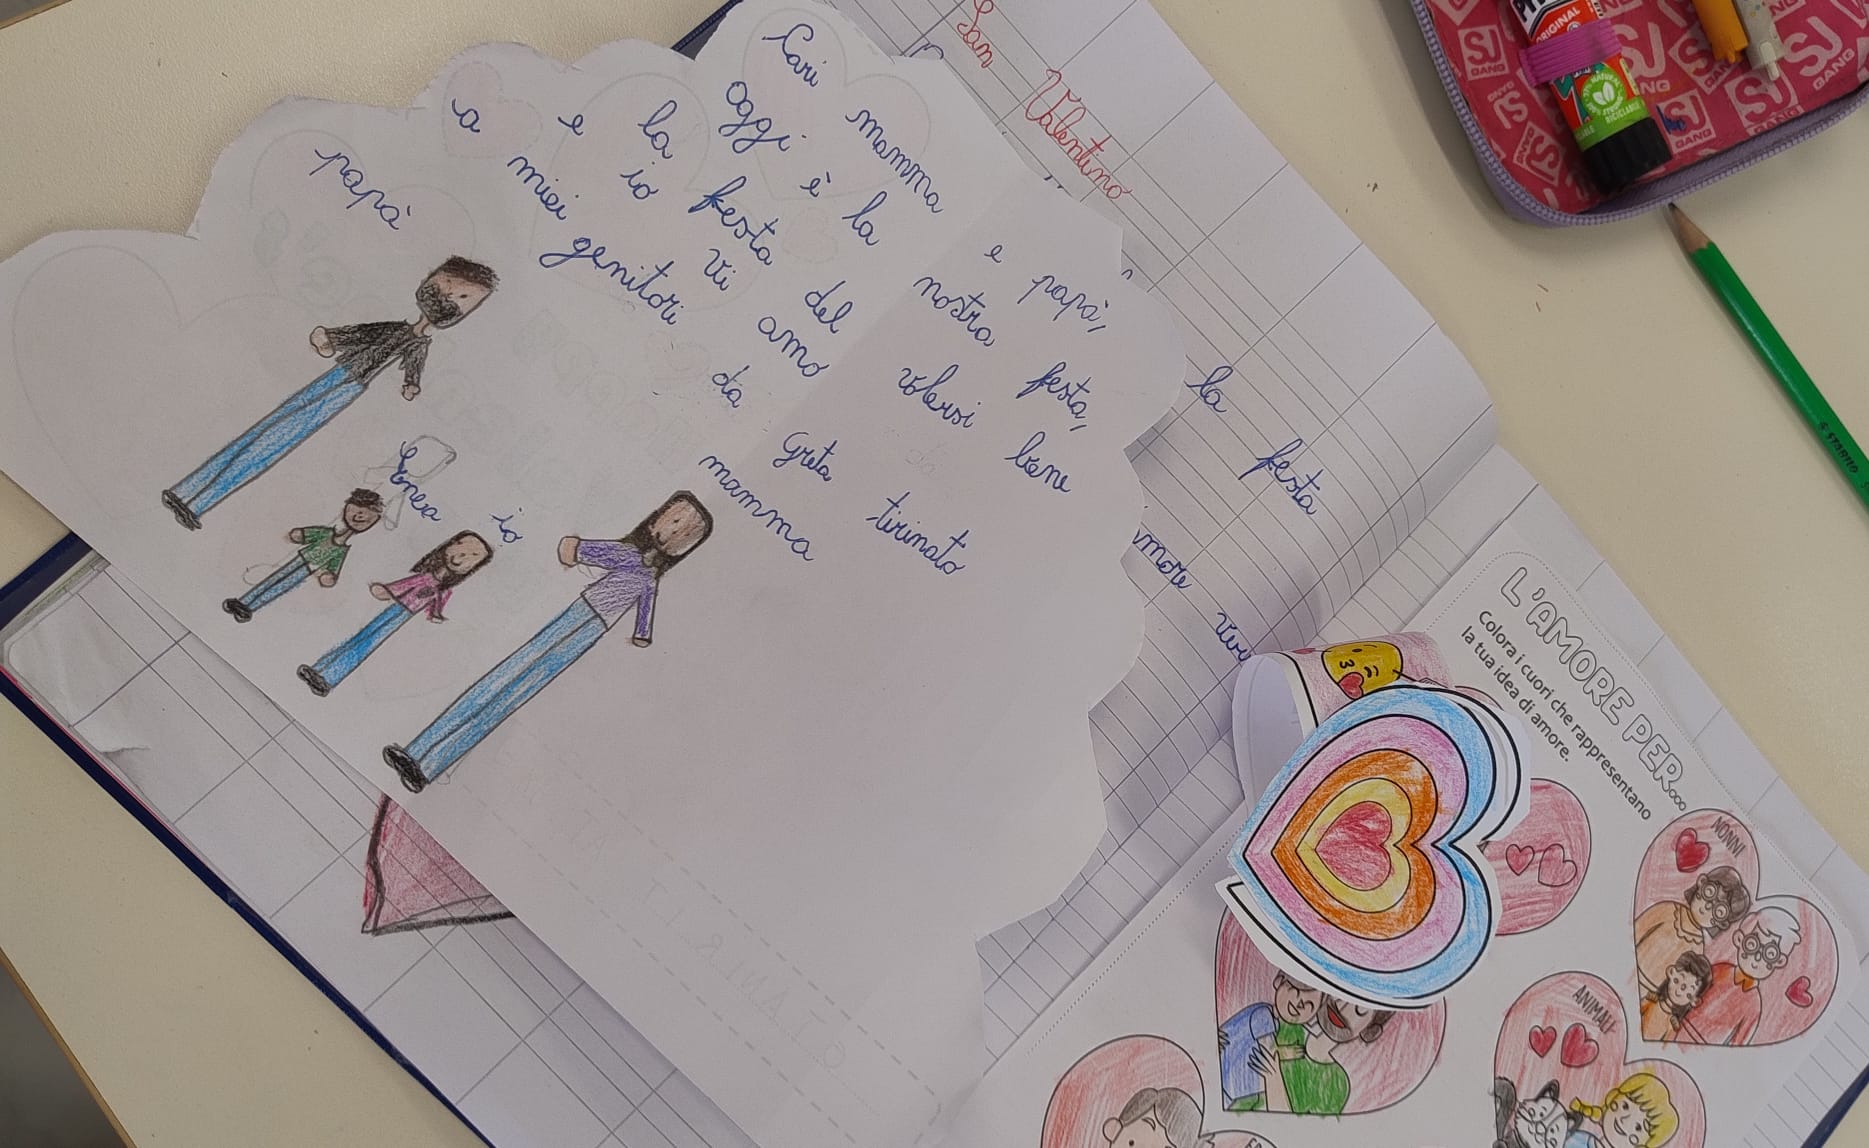 Cari mamma e papà,
Oggi è la nostra festa,
la festa del volersi bene
e io Vi amo
a miei genitori da Greta tirinato
papà
Enea
io
mamma
San Valentino
la festa
L'AMORE PER...
Colora i cuori che rappresentano
la tua idea di amore.
NONNI
ANIMALI
ORIGINAL
SJ
GANG